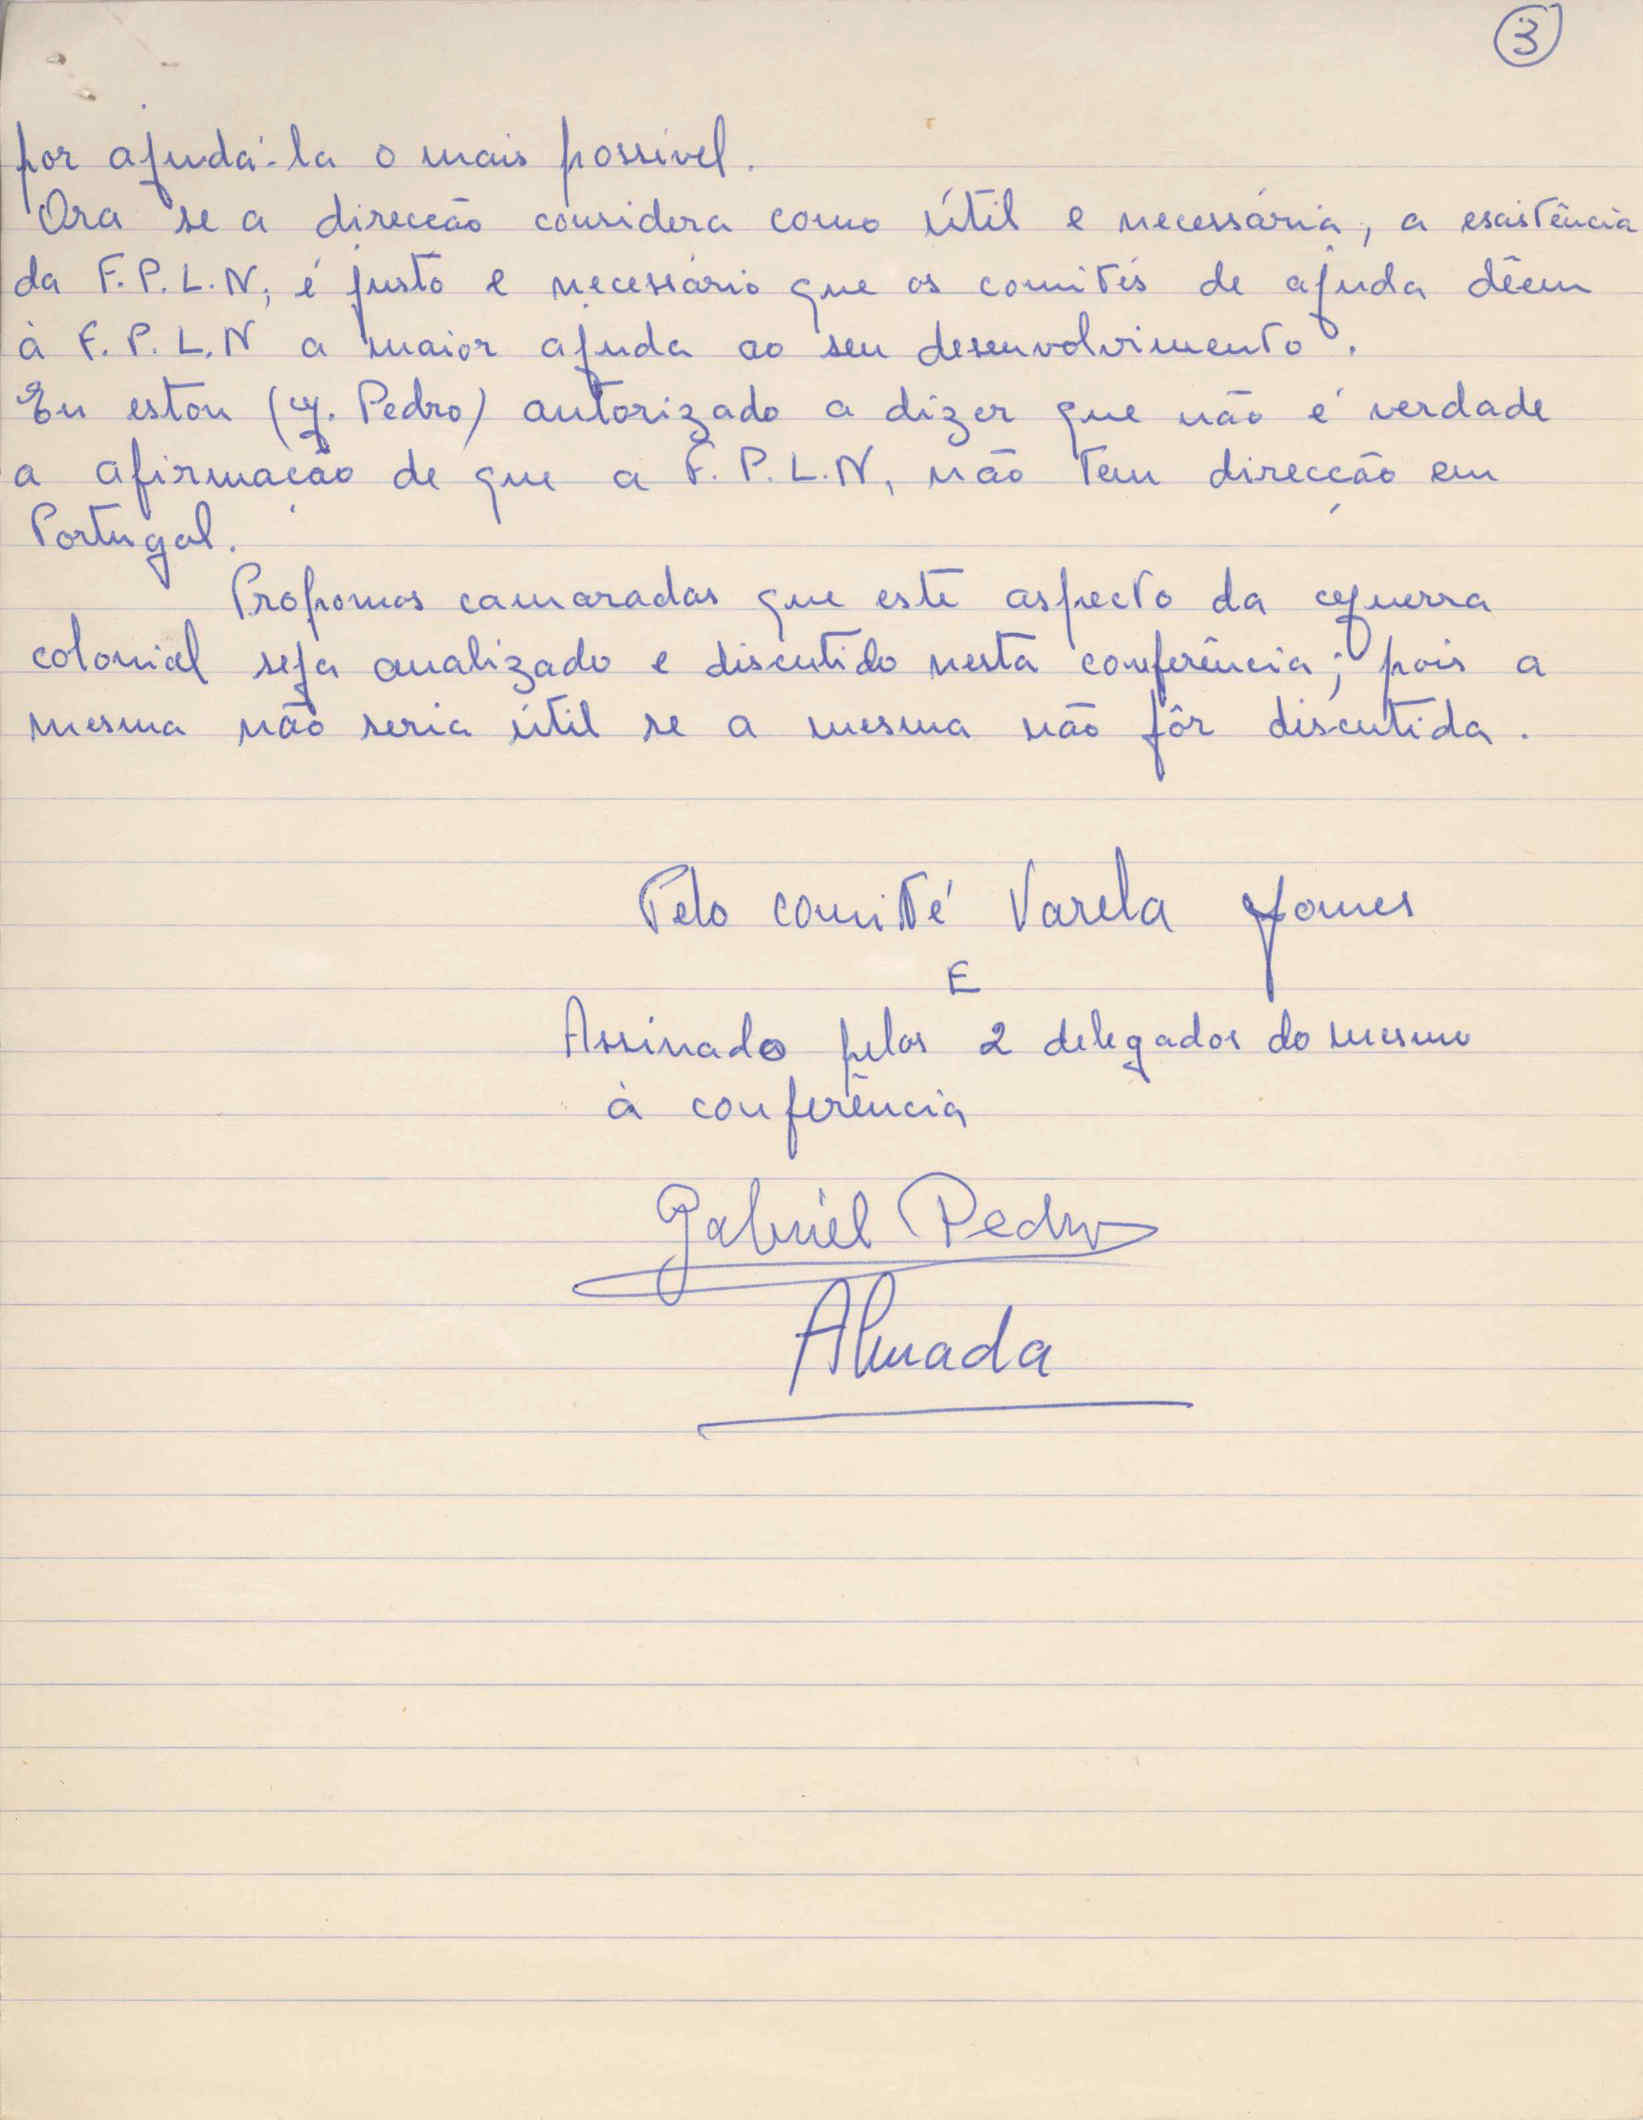 3
por ajudá-la o mais possivel.
Ora se a direcção considera como útil e necessária, a escistência
da F.P.L.N, é justo e necessário que os comités de ajuda dêem
à F.P.L.N a maior ajuda ao seu desenvolvimento.
Eu estou (G. Pedro) autorizado a dizer que não é verdade
a afirmação de que a F.P.L.N, não tem direcção em
Portugal.
Propomos camaradas que este aspecto da guerra
colonial seja analizado e discutido nesta conferência; pois a
mesma não seria útil se a mesma não fôr discutida.
Pelo comité Varela Gomes
E
Assinado pelos 2 delegados do mesmo
à conferência
Gabriel Pedro
Almada